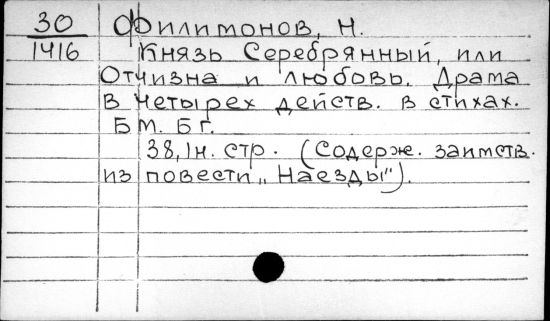 30 Филимонов, Н.
1416 Князь Серебрянный, или
Отчизна и любовь. Драма
в четырех действ. в стихах.
Б м. Б г.
38, 1н. стр. (Содерж. заимств.
из повести „Наезды").